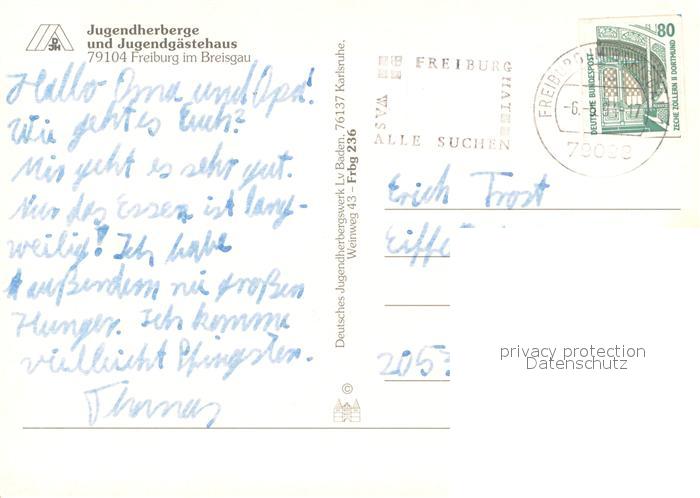 DJH
Jugendherberge
und Jugendgästehaus
79104 Freiburg im Breisgau
Hallo Oma und Opa!
Wie geht es Euch?
Mir geht es sehr gut.
Nur das Essen ist lang-
weilig! Ich habe
außerdem nie großen
Hunger. Ich komme
vielleicht Pfingsten.
Thomas
Deutsches Jugendherbergswerk Lv Baden, 76137 Karlsruhe,
Weinweg 43 – Frbg 236
©
FREIBURG
HAT
WAS
ALLE SUCHEN
FREIBURG
-6.
17
DEUTSCHE BUNDESPOST
80
ZECHE ZOLLERN II DORTMUND
Erich Trost
Eiffe
2053
privacy protection
Datenschutz